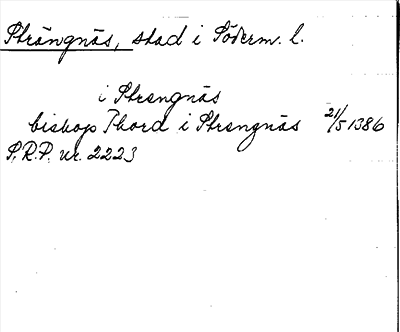 Strängnäs, stad i Söderm. l.
i Strengnäs
biskop Thord i Strengnäs 21/5 1386
P.R.P. nr. 2223